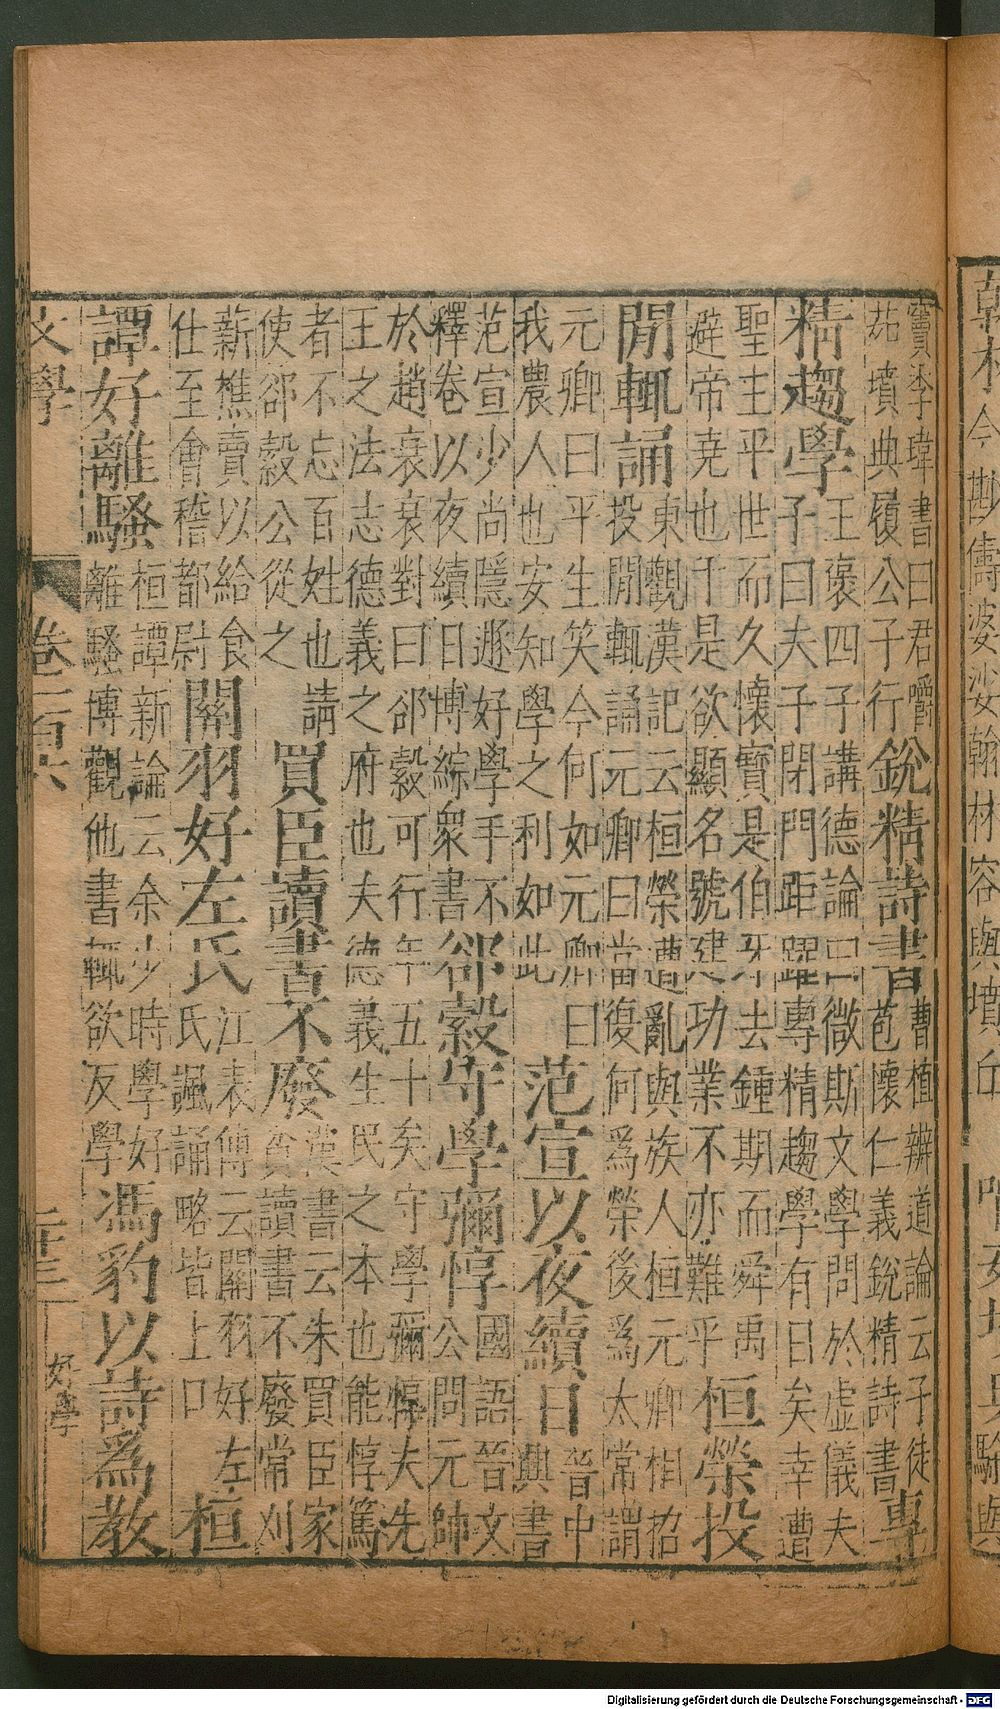 翰林今儔婆娑翰林容與墳丘
竇李瑋書曰君嚼
茹墳典履公子行
銳精詩書
曹植辨道論云子徒
苞懷仁義銳精詩書
專
精趨學
王褒四子講德論曰微斯文學問於虛儀夫
子曰夫子閉門距躍專精趨學有日矣幸遭
聖主平世而久懷寶是伯牙去鍾期而舜禹
避帝堯也于是欲顯名號建功業不亦難乎
桓榮投
閒輒誦
東觀漢記云桓榮遭亂與族人桓元卿相招
投閒輒誦元卿曰當復何爲榮後爲太常謂
元卿曰平生笑今何如元卿曰
我農人也安知學之利如此
范宣以夜續日
晉中
興書
范宣少尚隱遯好學手不
釋卷以夜續日博綜衆書
郤縠守學彌惇
國語晉文
公問元帥
於趙衰衰對曰郤縠可行年五十矣守學彌惇夫先
王之法志德義之府也夫德義生民之本也能惇篤
者不忘百姓也請
使郤縠公從之
買臣讀書不廢
漢書云朱買臣家
貧讀書不廢常刈
薪樵賣以給食
仕至會稽都尉
關羽好左氏
江表傳云關羽好左
氏諷誦略皆上口
桓
譚好離騷
桓譚新論云余少時學好
離騷博觀他書輒欲友學
馮豹以詩爲教
文學
卷二百六
二十三
好學
Digitalisierung gefördert durch die Deutsche Forschungsgemeinschaft - DFG